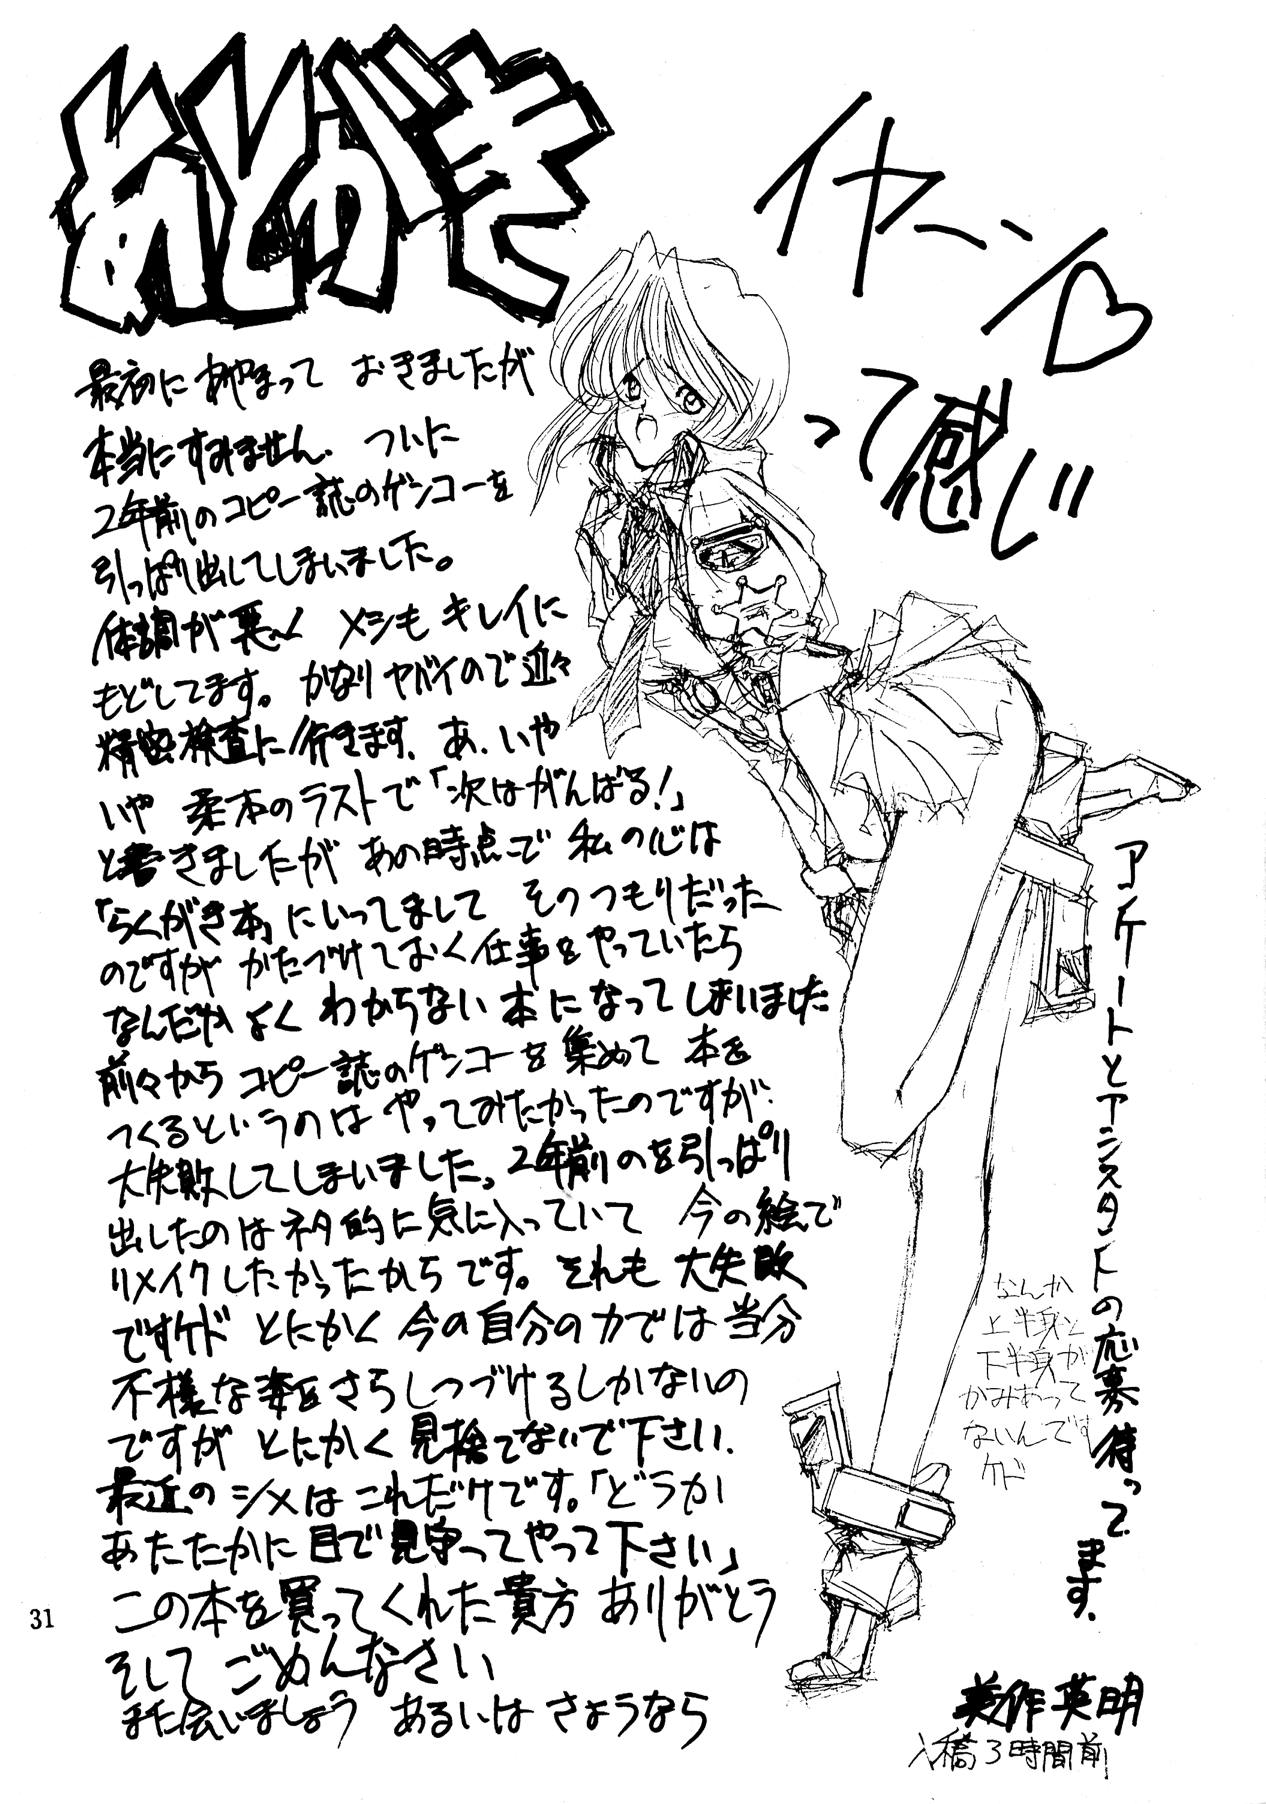 あとがき
最初にあやまって おきましたが
本当にすみません. ついに
2年前のコピー誌のゲンコーを
引っぱり出してしまいました。
体調が悪く メシも キレイに
もどしてます。かなりヤバイので近々
精密検査に行きます. あ. いや
いや 柔本のラストで「次はがんばる!」
と書きましたが あの時点で 私の心は
「らくがき本」にいってまして そのつもりだった
のですが かたづけておく仕事をやっていたら
なんだかよく わからない 本になってしまいました
前々から コピー誌のゲンコーを集めて 本を
つくるというのは やってみたかったのですが.
大失敗してしまいました。2年前のを引っぱり
出したのはネタ的に気に入っていて 今の絵で
リメイクしたかったからです。それも 大失敗
ですケド とにかく 今の自分の力では当分
不様な姿をさらしつづけるしかないの
ですが とにかく見捨てないで下さい.
最近の シメは これだけです。「どうか
あたたかに目で見守ってやって下さい」
この本を買ってくれた貴方 ありがとう
そして ごめんなさい
また会いましょう あるいは さようなら
イヤーン♡
って感じ
アンケートとアシスタントの応募待ってます.
なんか
上半身と
下半身が
かみあって
ないんです
ケド
美作英明
入稿3時間前
31